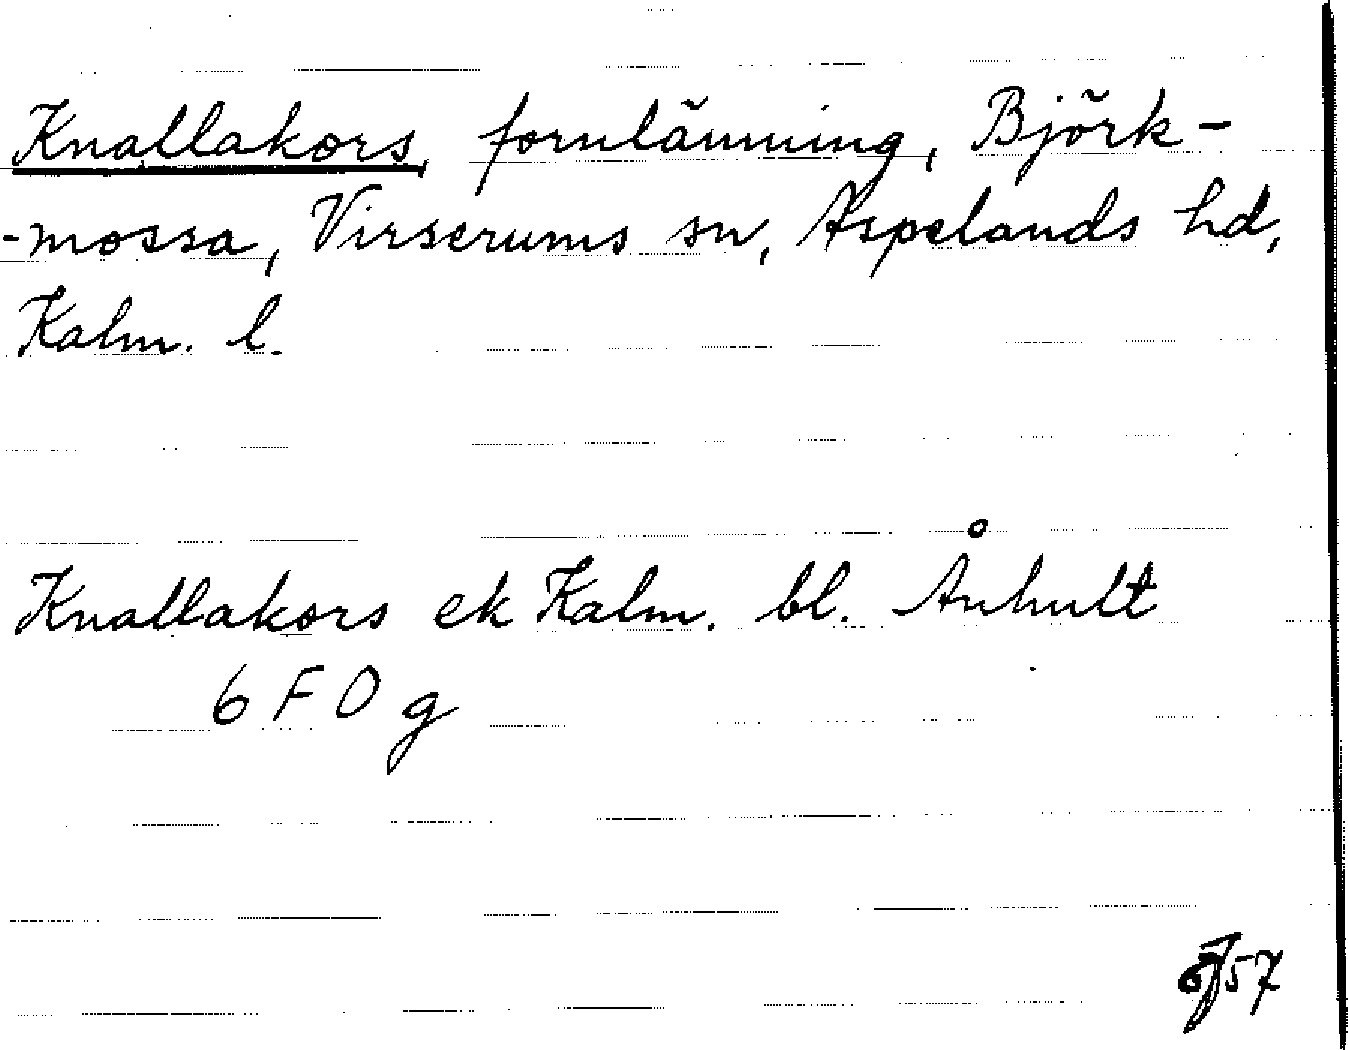 Knallakors, fornlämning, Björk-
-mossa, Virserums sn, Aspelands hd,
Kalm. l.
Knallakors ek Kalm. bl. Århult
6 F 0 g
57